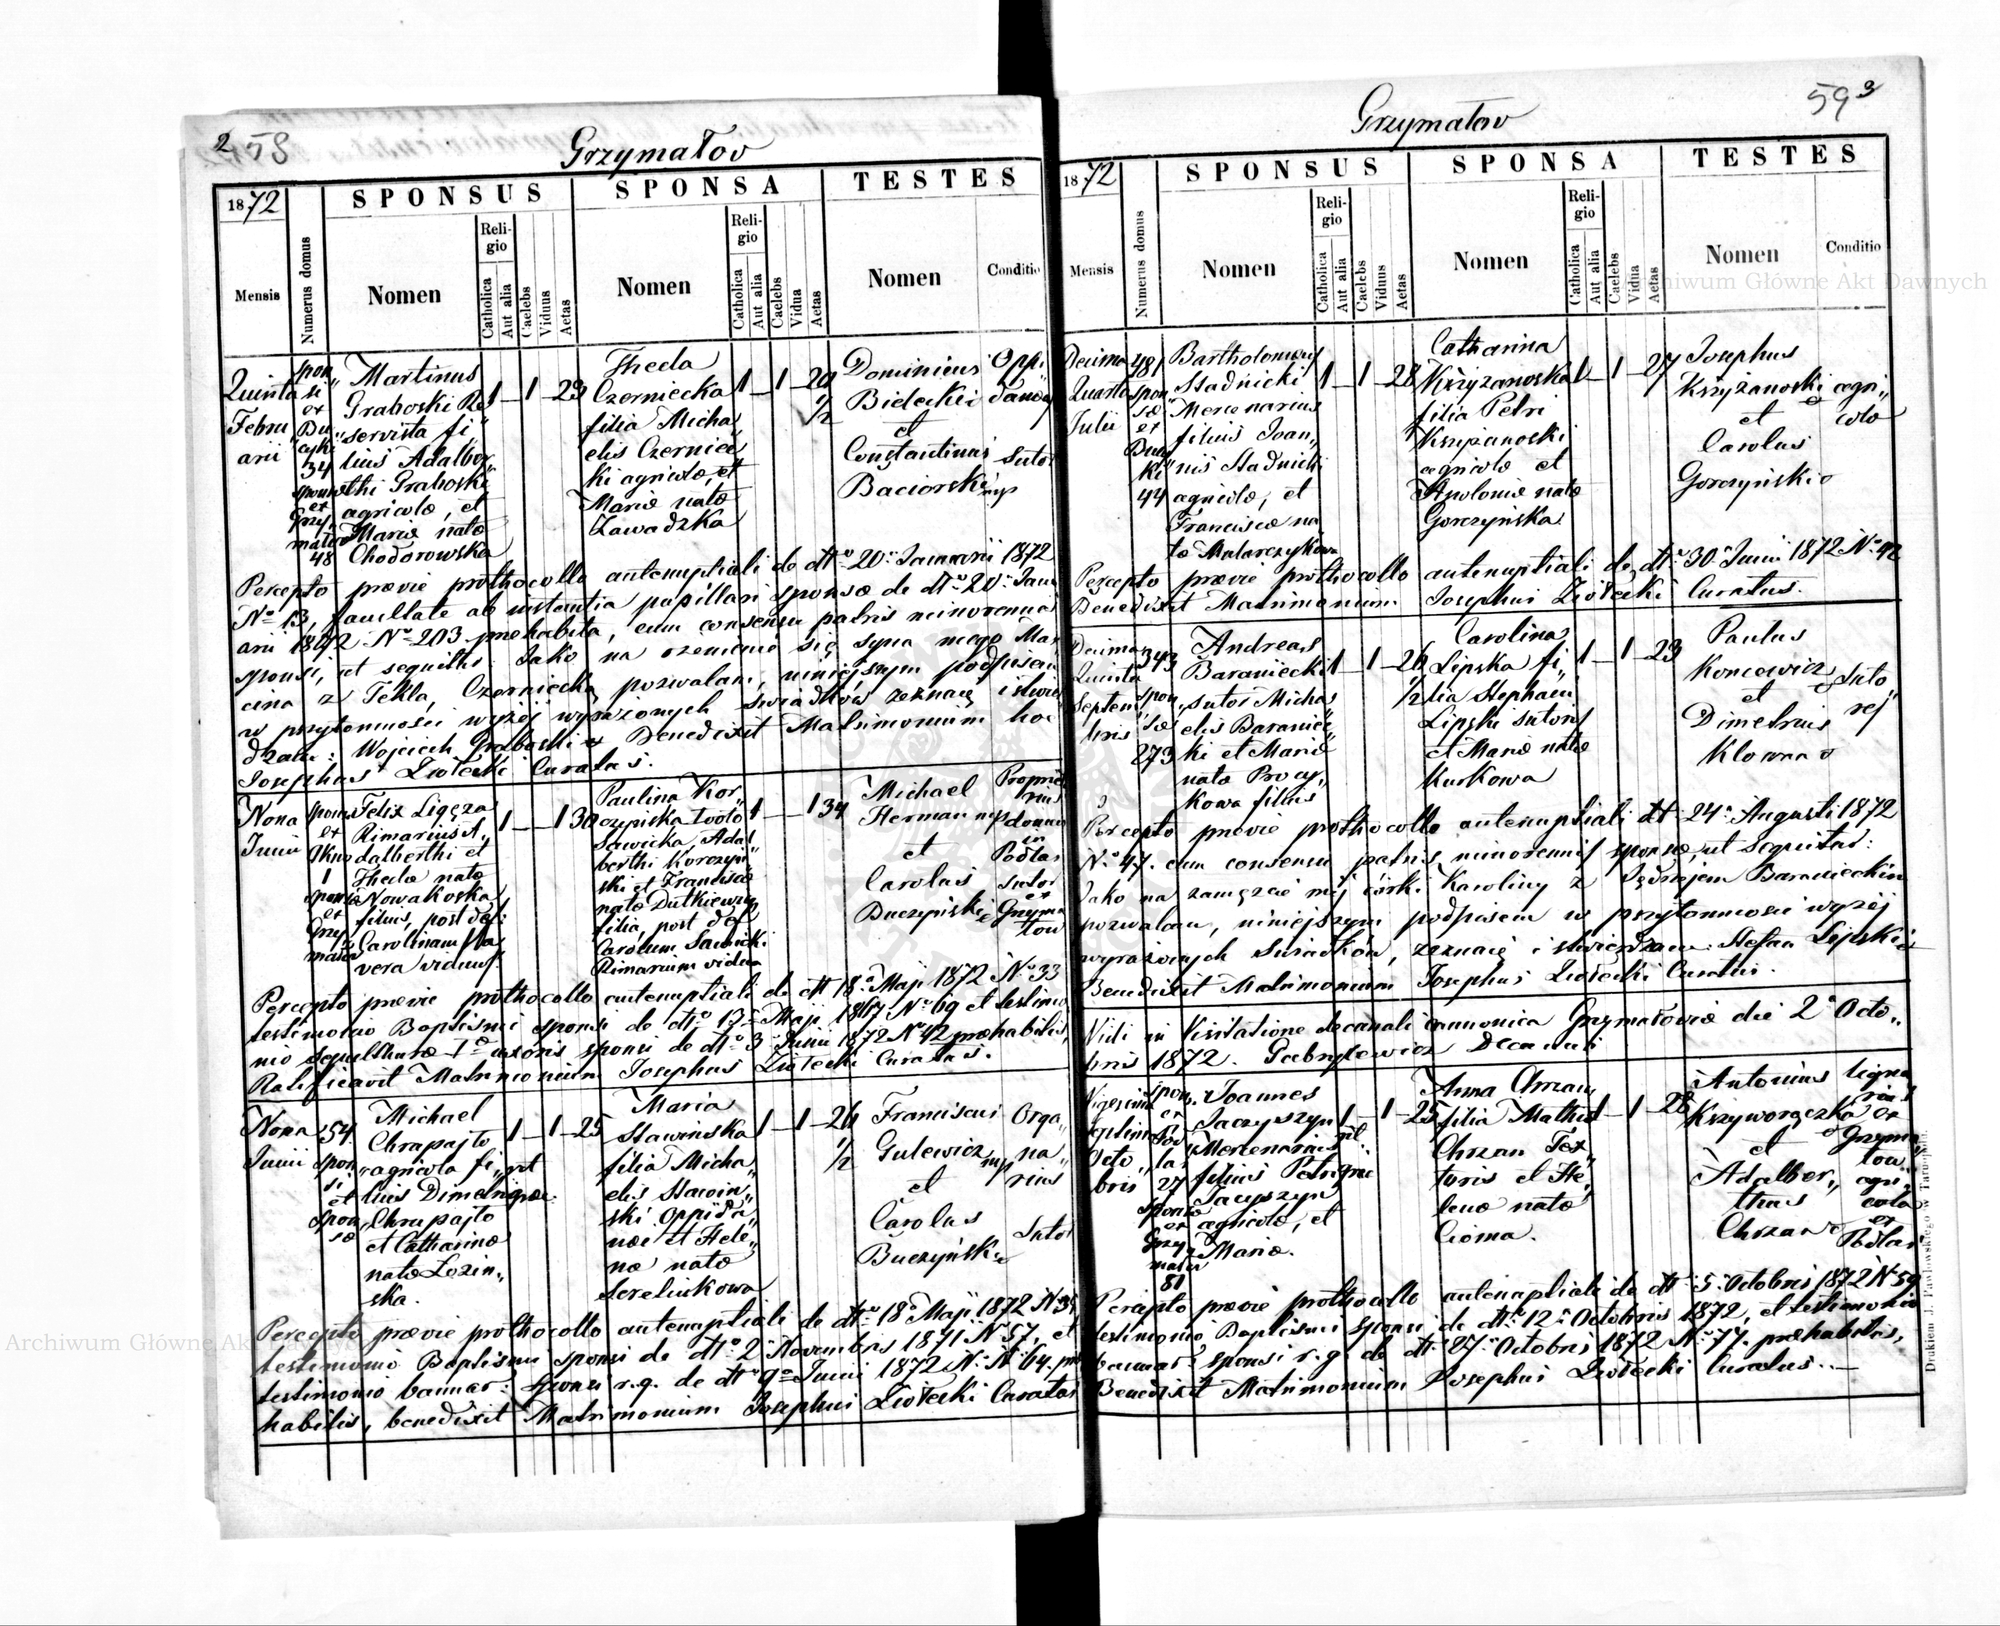 2 58
Grzymałov
1872
SPONSUS
SPONSA
TESTES
Mensis
Numerus domus
Nomen
Religio
Catholica
Aut alia
Caelebs
Viduus
Aetas
Nomen
Religio
Catholica
Aut alia
Caelebs
Vidua
Aetas
Nomen
Conditio
Quinta
Febru„
arii
spon„
si
et
Bu„
cyki
34
sponsæ
et
Grzy„
malov
48
Martinus
Graboski Re„
servista fi„
lius Adalber„
thi Graboski
agricolæ, et
Mariæ natæ
Chodorowska
1 — 1 — 23
Thecla
Czerniecka
filia Micha„
elis Czerniec„
ki agricolæ, et
Mariæ natæ
Zawadzka
1 — 1 — 20 1/2
Dominicus
Bielecki
et
Constantinus
Baciorski mp
Oppi„
danus
Sutor
Percepto prævie prothocollo antenuptiali de dtto 20. Januarii 1872
No 13, facultate ab instantia pupillari sponsæ de dto 20. Janu
arii 1872 No 203 præhabita, cum consensu patris minorennis
sponsi, ut sequitur: Jako na ożenienie się syna mego Mar
cina z Teklą Czerniecką pozwalam, niniejszym podpisem
w przytomności wyżéj wyrażonych świadków zeznaję i stwier
dzam: Wojciech Graboski. Benedixit Matrimonium hoc
Josephus Ziołecki Curatus.
Nona
Junii
sponsi
et
1
sponsæ
et
Grzy
malov
Felix Ligęza
Rimarius A„
dalberthi et
Theclæ natæ
Nowakoska
filius, post def:
Carolinam Sła
vera viduus.
1 — — 1 30
Paulina Kor„
czyńska 1o voto
Sawicka, Adal
berthi Korczyń
ski et Franciscæ
natæ Dutkiewicz
filia, post def
Carolum Sawicki
Rimarium vidua
1 — — 1 34
Michael
Herman mp
et
Carolus
Buczyński
Proprie
tarius
domus
in
Podlas
Sutor
et
Grzyma
łow
Percepto prævie prothocollo antenuptiali de dtt 18. Maji 1872 No 33
testimonio Baptismi sponsi de dtto 13 Maji 1867 No 69 et testimo
nio sepulthuræ 1æ uxoris sponsi de dtto 3 Junii 1872 No 42 præhabitis,
Ratificavit Matrimonium Josephus Ziołecki Curatus.
Nona
Junii
54
spon„
si
et
spon„
sæ
Michael
Chrapajto
agricola fi„
lius Dimetri
Chrapajto
et Catharinæ
natæ Łozin„
ska.
rit
græc
1 — 1 — 25
Maria
Sławińska
filia Micha„
elis Sławin„
ski Oppida„
nei et Hele„
næ natæ
Serelukowa
1 — 1 — 26 1/2
Franciscus
Gulewicz mp
et
Carolus
Buczyński
Orga„
na„
rius
Sutor
Percepto prævie prothocollo antenuptiali de dtto 18. Maji 1872 No 34
testimonio Baptismi sponsi de dtto 2 Novembris 1871 No 57, et
testimonio bannor: sponsi r.g. de dtto 9 Junii 1872 No 64. præ
habitis, benedixit Matrimonium Josephus Ziołecki Curatus
Grzymałow
59 3
1872
SPONSUS
SPONSA
TESTES
Mensis
Numerus domus
Nomen
Religio
Catholica
Aut alia
Caelebs
Viduus
Aetas
Nomen
Religio
Catholica
Aut alia
Caelebs
Vidua
Aetas
Nomen
Conditio
Decima
Quarta
Julii
481
spon„
sæ
et
Bucy„
ki
44
Bartholomeus
Stadnicki
Mercenarius
filius Joan„
nis Stadnicki
agricolæ, et
Franciscæ na
tæ Malarczykowa
1 — 1 — 28
Catharina
Krzyżanoska
filia Petri
Krzyżanoski
agricolæ et
Apoloniæ natæ
Gorczyńska
1 — 1 — 27
Josephus
Krzyżanoski
et
Carolus
Gorczyński
agri„
colæ
Percepto prævie prothocollo antenuptiali de dtto 30. Junii 1872 No 42
Benedixit Matrimonium Josephus Ziołecki Curatus.
Decima
Quinta
Septem
bris
343
spon„
sæ
273
Andreas
Baraniecki
sutor Micha
elis Baraniec„
ki et Mariæ
natæ Procy„
kowa filius
1 — 1 — 26 1/2
Carolina
Lipska fi„
lia Stephani
Lipski sutoris
et Mariæ natæ
Kurkowa
1 — 1 — 23
Paulus
Koncewicz
et
Dimetrius
Klowna
Suto„
res
Percepto prævie prothocollo antenuptiali dt 24. Augusti 1872
No 47. cum consensu patris minorennis sponsæ, ut sequitur:
Jako na zamęzcie méj córki Karoliny z Jędrzejem Baranieckim
pozwalam, niniejszym podpisem w przytomności wyżéj
wyrażonych świadków, zeznaję i stwierdzam: Stefan Lipski
Benedixit Matrimonium Josephus Ziołecki Curatus.
Vidi in Visitatione decanali canonica Grzymałoviæ die 2 Octo„
bris 1872. Gabrylewicz Decanus
Vigesima
Septima
Octo„
bris
spon.
et
Pod
las
27
sponsæ
et
Grzy
malov
81
Joannes
Jacyszyn
Mercenarius
filius Petri
Jacyszyn
agricolæ, et
Mariæ.
rit.
græc
1 — 1 — 25
Anna Chrzan
filia Mathiæ
Chrzan Tex„
toris et He„
lenæ natæ
Cioma.
1 — 1 — 28
Antonius
Krzyworączka
et
Adalber„
thus
Chrzan
ligna
rius
ex
Grzyma„
łow
agri„
cola
et
Podlas
Percepto prævie prothocollo antenuptiali de dtt 5. Octobris 1872 No 59
testimonio Baptismi sponsi de dtto 12. Octobris 1872, et testimonio
bannor. sponsi r.g. de dtt 27. Octobris 1872 No 77. præhabitis,
Benedixit Matrimonium Josephus Ziołecki Curatus. —
Drukiem J. Pawłowskiego w Tarnopolu.
Archiwum Główne Akt Dawnych
Archiwum Główne Akt Dawnych